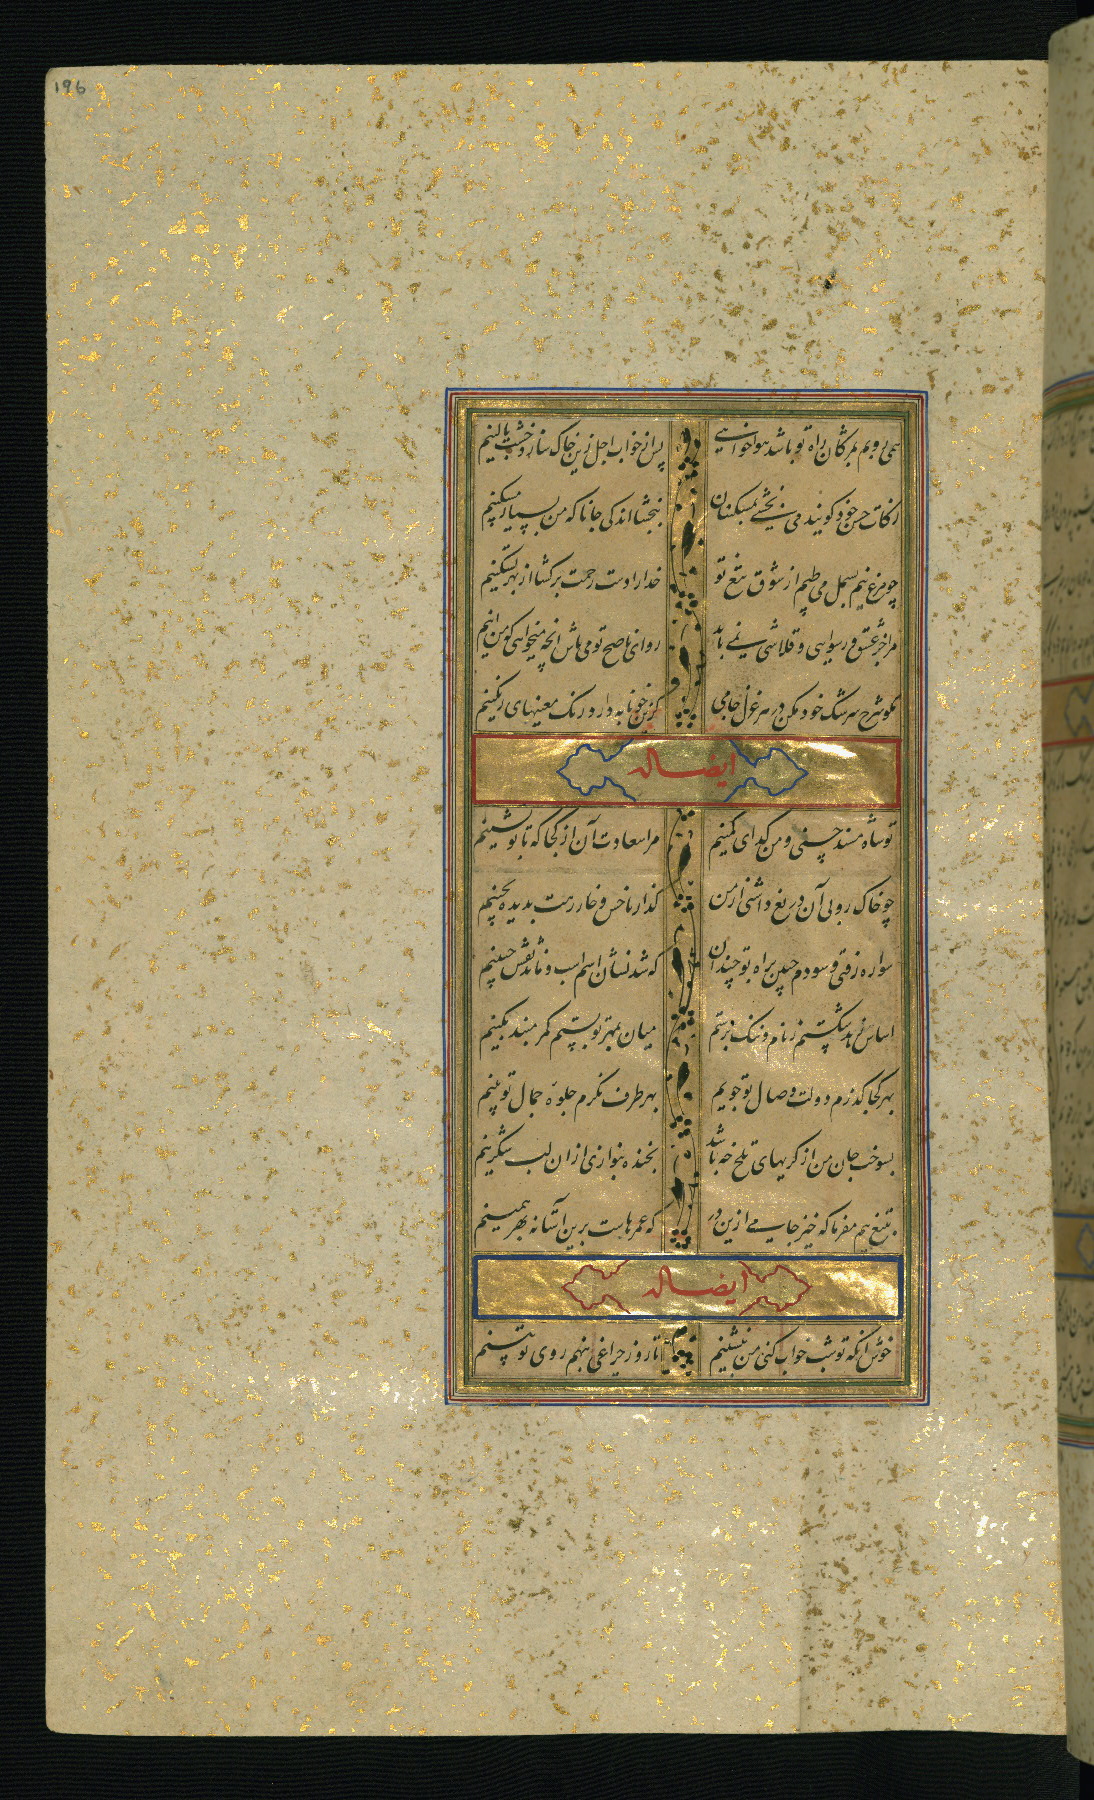 196
همی روبم بمژگان راه تو باشد هواخواهی
پس از خواب اجل زین خاک سازد خشت بالینم
زکات حسن خود گویند می بخشی بمسکینان
ببخشا اندکی جانا که من بسیار مسکینم
چو مرغ نیم بسمل می طپم از شوق تیغ تو
خدا را دست رحمت برگشا از بهر تسکینم
مرا جز عشق و رسوایی و قلاشی نمی باید
رو ای ناصح تو می باش آنچه میخواهی که من اینم
بگو شرح سرشک خود مکن در هر غزل جامی
کزین خونابه دارد رنگ معنیهای رنگینم
ایضا له
تو شاه مسند حسنی و من گدای کمینم
مرا سعادت آن از کجا که با تو نشینم
چو خاک روبی آن در دریغ داشتی از من
گذار تا خس و خار رهت بدیده بچینم
سواره رفتی و سودم جبین براه تو چندان
که شد نشان سم اسب و نماند نقش جبینم
اساس زهد شکستم ز نام و ننگ برستم
میان بمهر تو بستم کمر مبند بکینم
بهر کجا گذرم دولت وصال تو جویم
بهر طرف نگرم جلوه جمال تو بینم
بسوخت جان من از گریهای تلخ چه باشد
بخنده بنوازی از ان لب شکرینم
بتیغ هم مفرما که خیز جامی ازین در
که عمرهاست برین آستانه بهر همینم
ایضا له
خوش آنکه تو شب خواب کنی من بنشینم
تا روز چراغی بنهم روی تو بینم